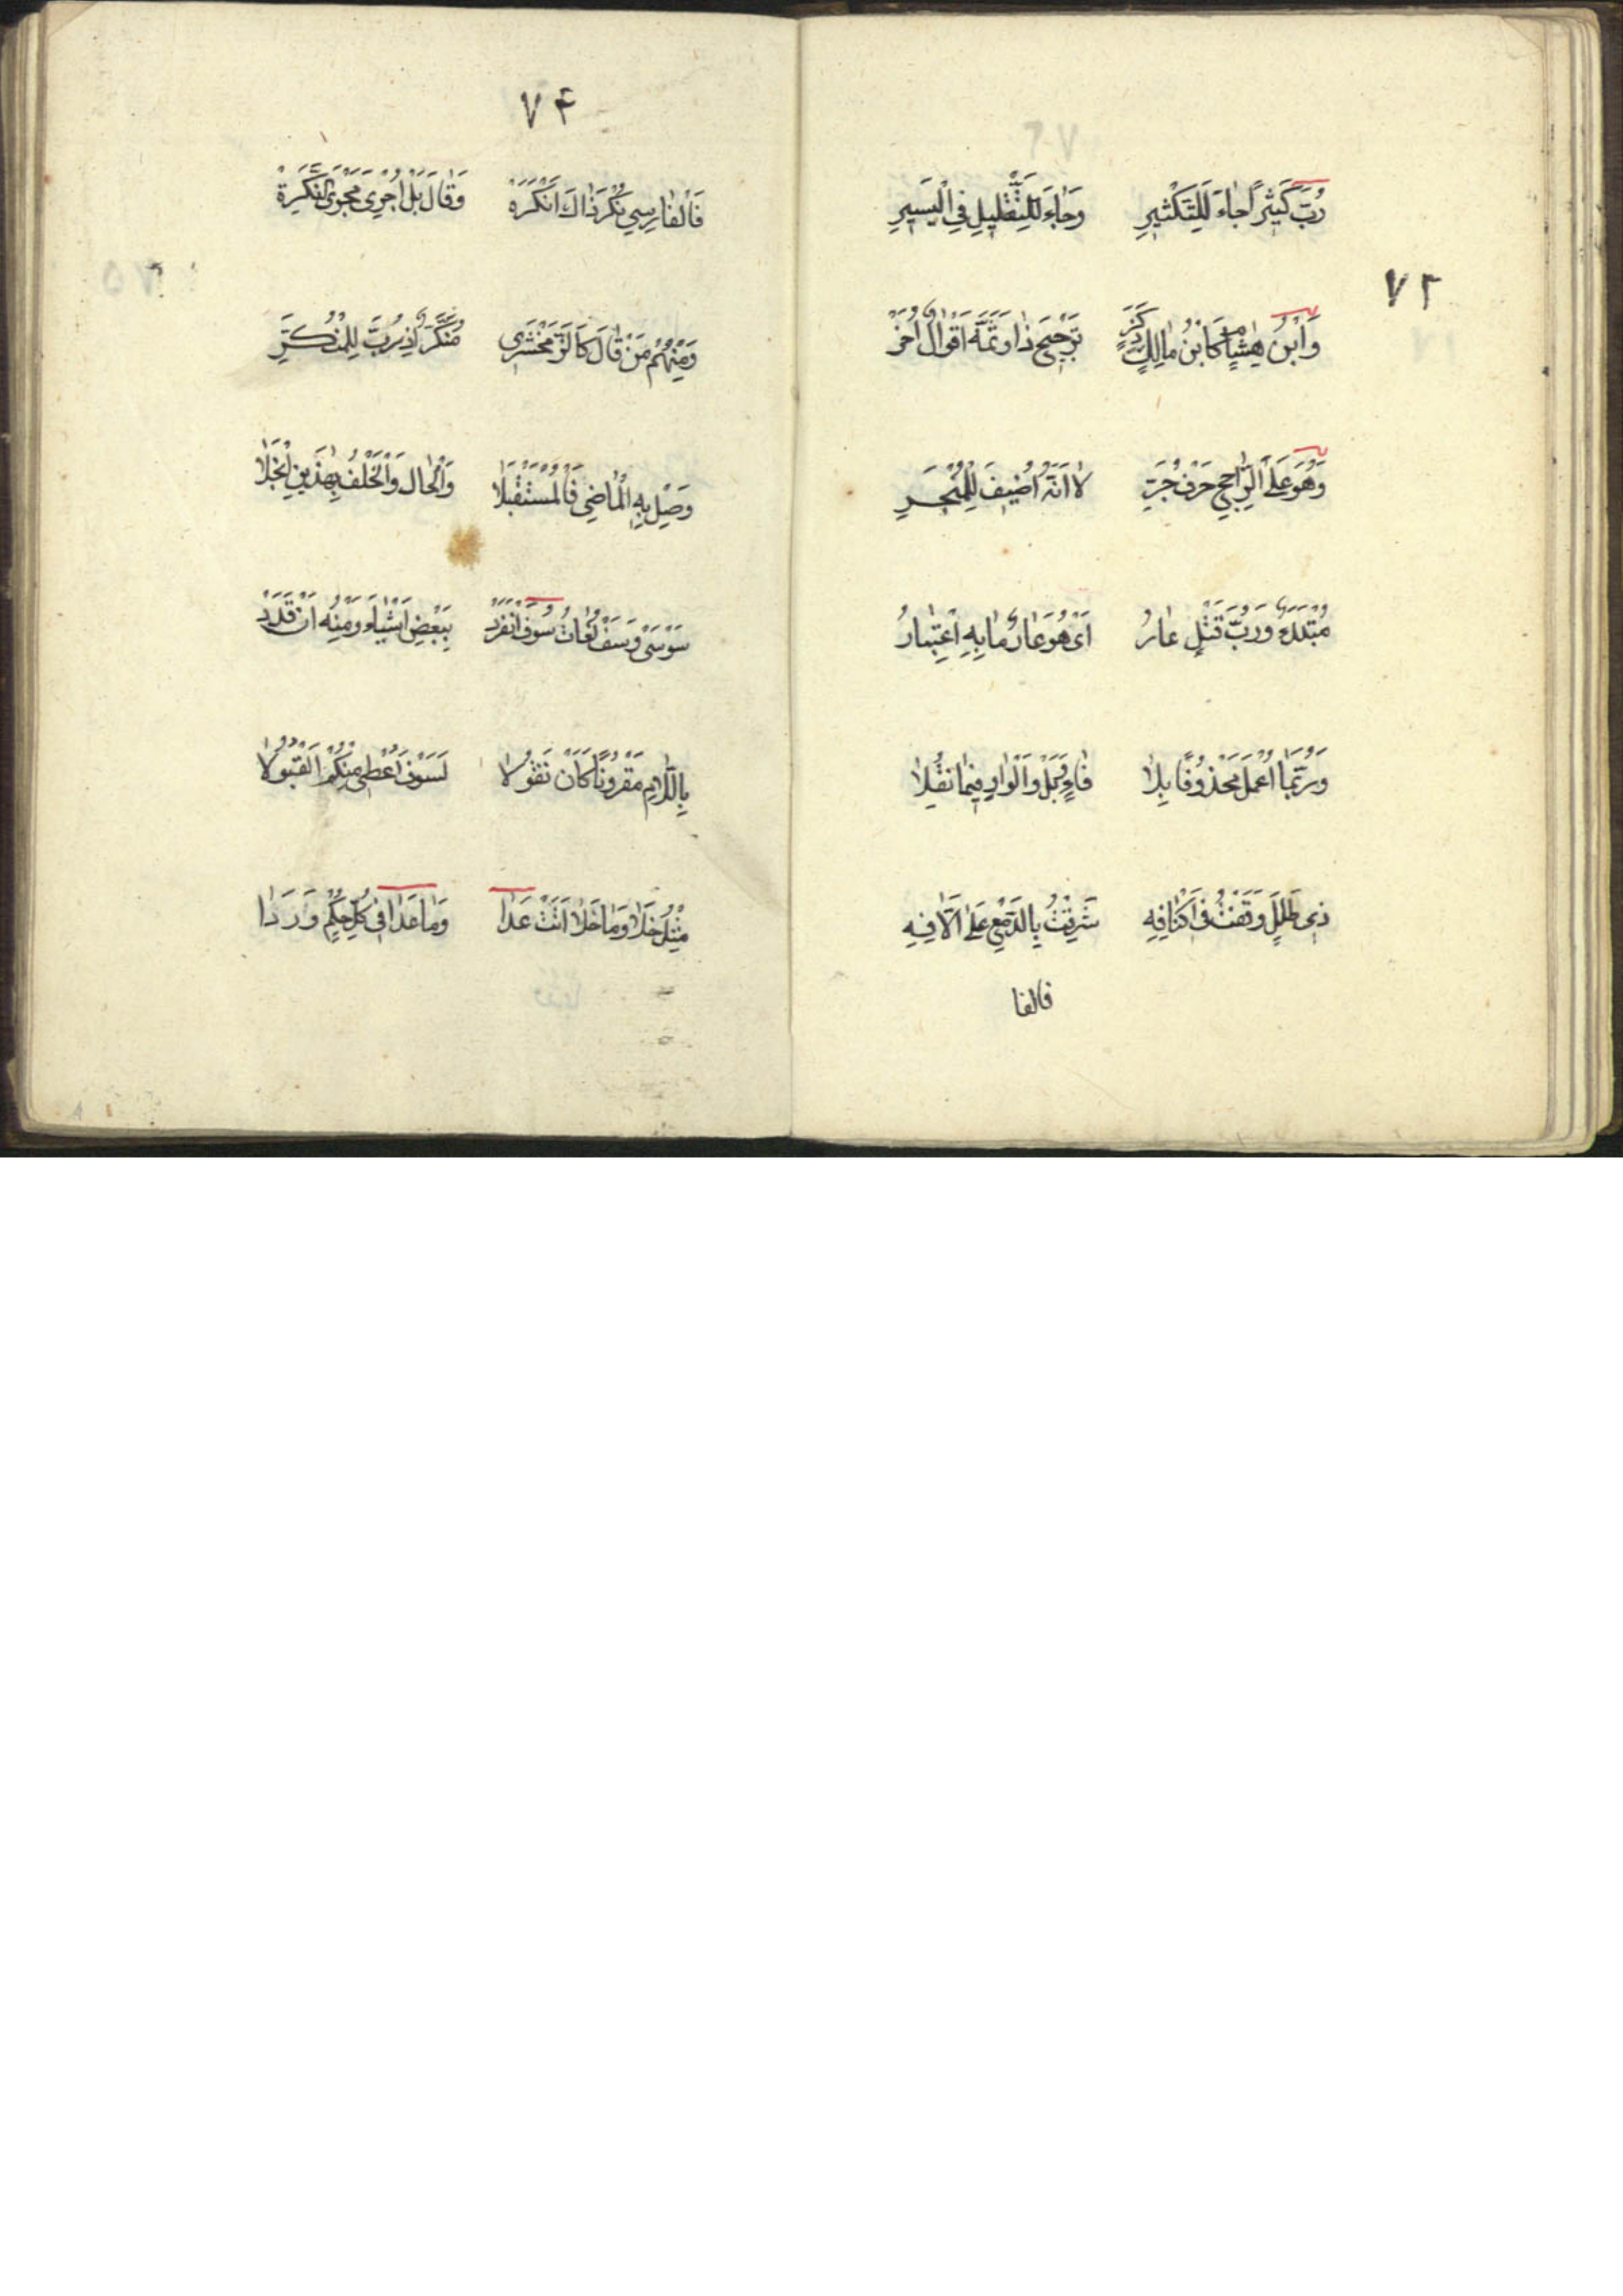 ٧٣
رُبَّ كَثِيْرًا جَاءَ لِلتَّكْثِيرِ وَجَاءَ لِلتَّقْلِيلِ فِي الْيَسِيرِ
وَابْنُ هِشَامٍ كَابْنُ مَالِكٍ ذَكَرَ تَرْجِيحَ ذَا وَثَمَّةَ اَقْوَالٌ اُخَرْ
وَهُوَ عَلَى الرَّاجِحِ حَرْفُ جَرِّ لَا اَنَّهُ اُضِيفَ لِلْمُنْجَرِّ
مُبْتَدَءٌ وَرُبَّ قَتْلٍ عَارُ اَىْ هُوَ عَارٌ مَا بِهِ اعْتِبَارُ
وَرُبَّمَا اُعْمِلَ مَحْذُوفًا بِلَا فَاءٍ وَبَلْ وَالْوَاوِ فِيمَا نُقِلَا
ذِى طَلَلٍ وَقَفْتُ فِى اَكْنَافِهِ شَرِقْتُ بِالدَّمْعِ عَلَى اٰلَافِهِ
فالفا
٧٤
فَالْفَارِسِي نَكَّرَ ذَاكَ اَنْكَرَهْ وَقَالَ بَلْ اُجْرِىَ مَجْرَى النَّكِرَةْ
وَمِنْهُمْ مَنْ قَالَ كَالزَّمَخْشَرِى مُنَكَّرٌ اِذْ رُبَّ لِلْمُنَكَّرِ
وَصِلْ بِهِ الْمَاضِى فَالْمُسْتَقْبَلَا وَالْحَالَ وَالْخُلْفُ بِهٰذَيْنِ انْجَلَا
سَوْ سَىْ وَسَفْ لُغَاتُ سَوْفَ انْفَرَدْ بِبَعْضِ اَشْيَاءَ وَمِنْهُ اَنْ قَدْ
بِاللَّامِ مَقْرُونًا كَاَنْ تَقُولَا لَسَوْفَ اُعْطِى مِنْكُمُ الْقَبُولَا
مِثْلُ خَلَا وَمَا خَلَا اَتَتْ عَدَا وَمَا عَدَا فِى كُلِّ حُكْمٍ وَرَدَا